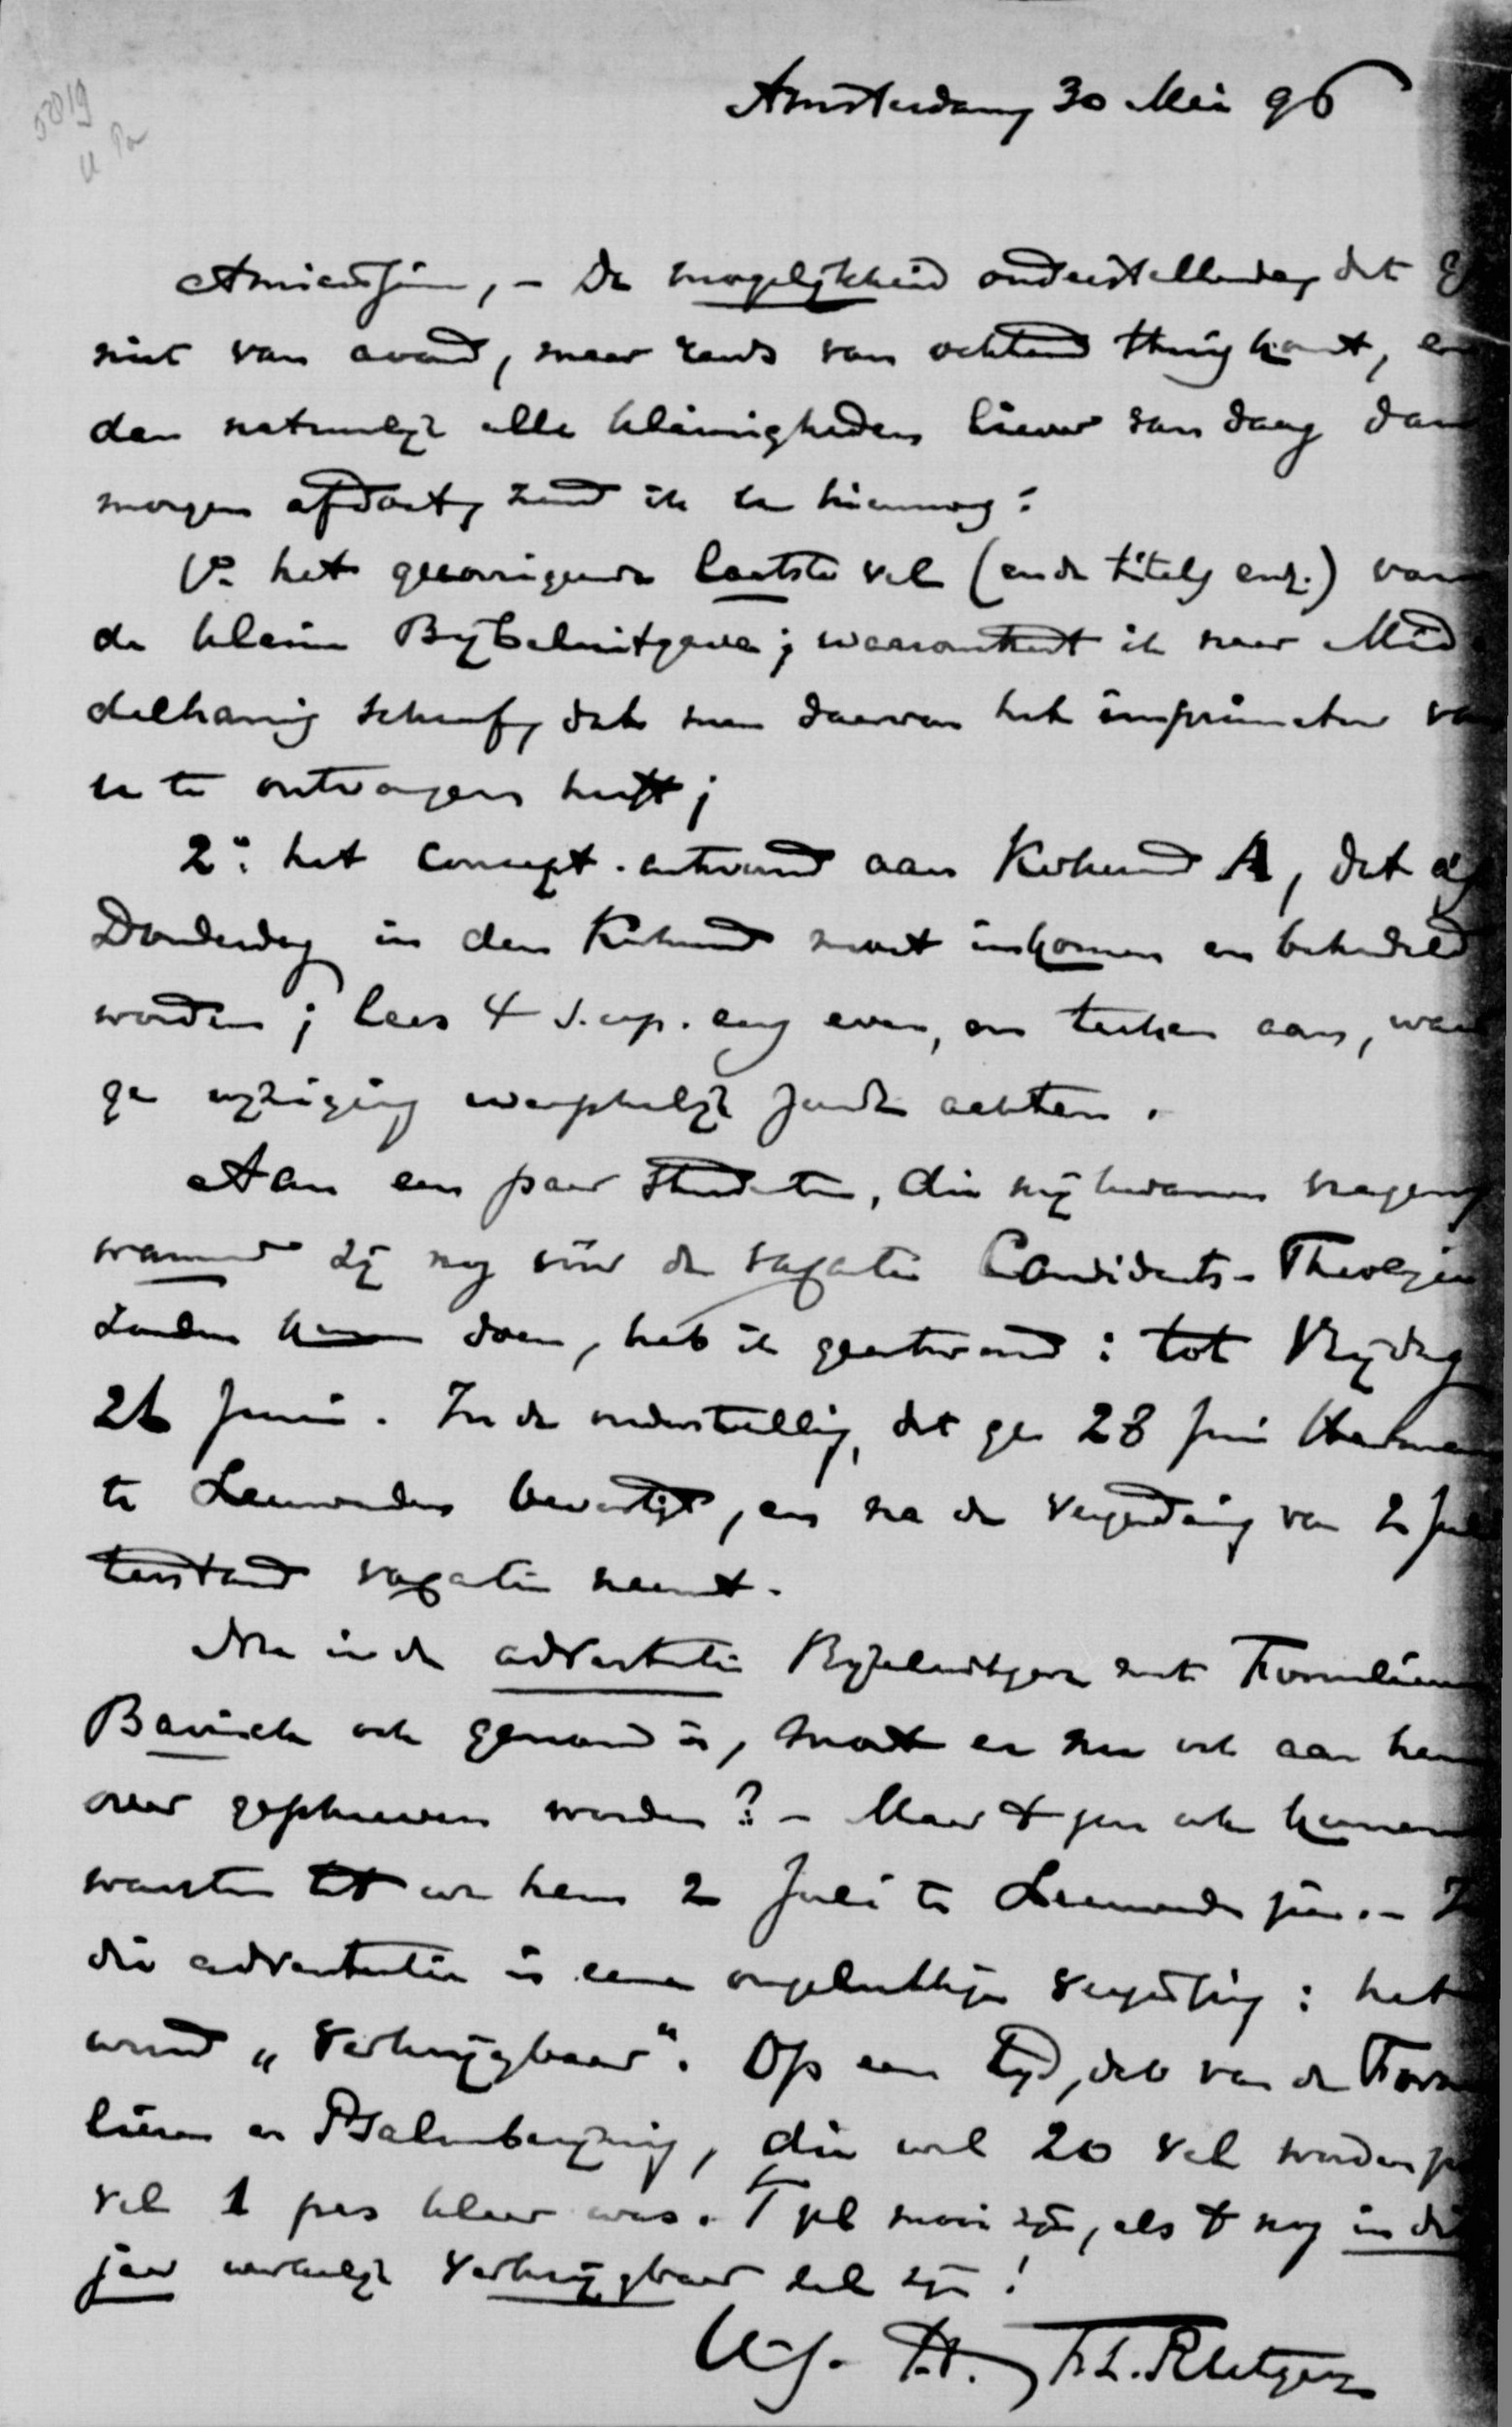 5019
Amsterdam, 30 Mei 96
Amicissime, – De mogelijkheid onderstellende, dat
niet van avond, maar reeds van ochtend thuis komt, en
dan natuurlijk alle kleinigheden liever van daag dan
morgen afdoet, zend ik u hiernog:
1º het gecorrigeerde laatste vel (en de titels enz.) van
de kleine Bijbeluitgave; waaromtrent ik naar Mid
delharnis schreef, dat men daarvan het imprimatur van
u te ontvangen heeft;
2º: het concept-antwoord aan Kerkeraad A, dat
Donderdag in den Kerkeraad moet inkomen en behandeld
worden; lees 't s.v.p. nog even, en teeken aan, waar
ge wijziging wenschelijk zoudt achten.
Aan een paar studenten, die mij kwamen vragen,
wanneer zij nog vóór de vacantie Candidaats-Theologie
zouden doen, heb ik geantwoord: tot Vrijdag
26 Juni. In de onderstelling, dat ge 28 Juni
te Leeuwarden bevestigt, en na de vergadering van 2 Juli
terstond vacantie neemt.
Nu in de advertentie Bijbeluitgave met Formulieren
Bavinck ook genoemd is, moet er nu ook aan hem
over geschreven worden? – Maar 't zou ook kunnen
wachten tot we hem 2 Juli te Leeuwarden zien. –
die advertentie is eene ongelukkige vergissing: het
woord „verkrijgbaar". Op een tijd, dat van de Formu
lieren en Psalmberijming, die wel 20 vel worden
vel 1 pas klaar was. 't Zal mooi zijn, als 't nog in dit
jaar werkelijk verkrijgbaar zal zijn!
t.t. F.L. Rutgers